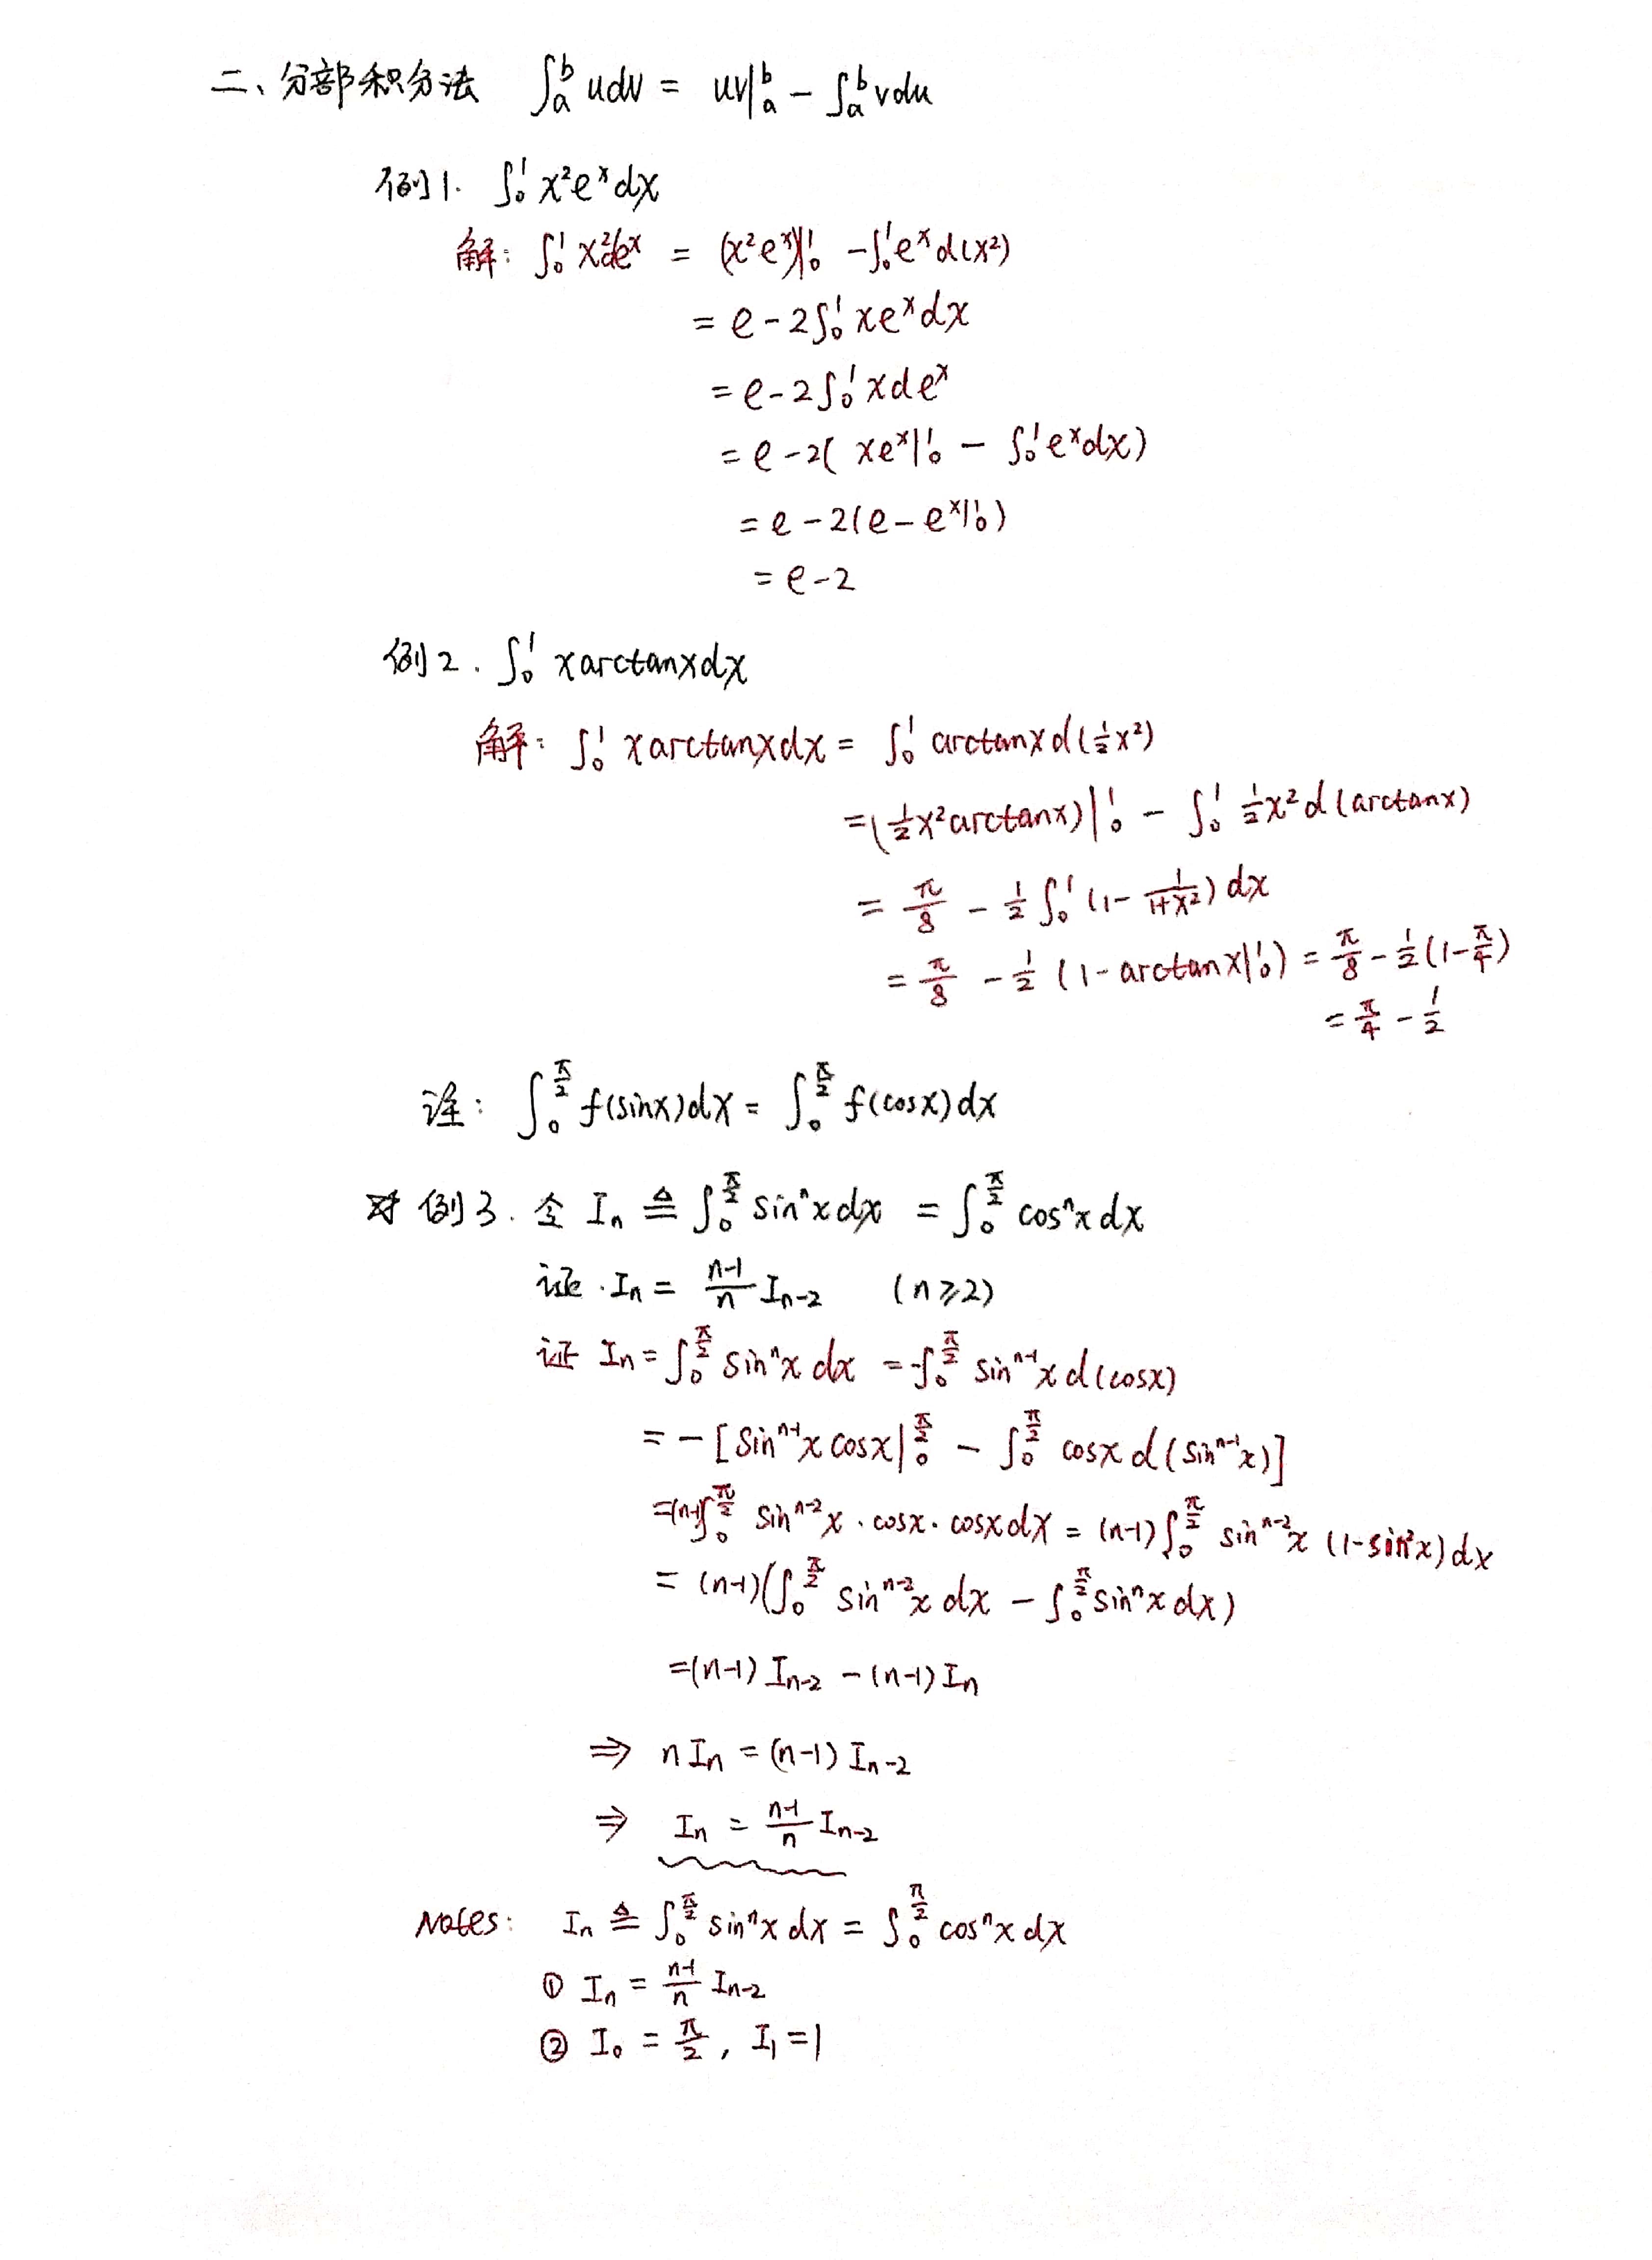 二、分部积分法 ∫_a^b udv = uv|_a^b - ∫_a^b vdu
例1. ∫_0^1 x²e^x dx
解: ∫_0^1 x²de^x = (x²e^x)|_0^1 - ∫_0^1 e^x d(x²)
= e - 2∫_0^1 xe^x dx
= e - 2∫_0^1 xde^x
= e - 2( xe^x|_0^1 - ∫_0^1 e^x dx)
= e - 2(e - e^x|_0^1)
= e - 2
例2. ∫_0^1 xarctanxdx
解: ∫_0^1 xarctanxdx = ∫_0^1 arctanxd(½x²)
= (½x²arctanx)|_0^1 - ∫_0^1 ½x²d(arctanx)
= π/8 - ½∫_0^1 (1 - 1/(1+x²))dx
= π/8 - ½(1 - arctanx|_0^1) = π/8 - ½(1 - π/4)
= π/4 - 1/2
注: ∫_0^{π/2} f(sinx)dx = ∫_0^{π/2} f(cosx)dx
例3. 令 I_n ≜ ∫_0^{π/2} sin^n x dx = ∫_0^{π/2} cos^n x dx
证. I_n = (n-1)/n I_{n-2} (n≥2)
证 I_n = ∫_0^{π/2} sin^n x dx = -∫_0^{π/2} sin^{n-1}x d(cosx)
= -[sin^{n-1}x cosx|_0^{π/2} - ∫_0^{π/2} cosx d(sin^{n-1}x)]
= (n-1)∫_0^{π/2} sin^{n-2}x · cosx · cosxdx = (n-1)∫_0^{π/2} sin^{n-2}x (1-sin²x)dx
= (n-1)(∫_0^{π/2} sin^{n-2}x dx - ∫_0^{π/2} sin^n x dx)
= (n-1)I_{n-2} - (n-1)I_n
⇒ nI_n = (n-1)I_{n-2}
⇒ I_n = (n-1)/n I_{n-2}
Notes: I_n ≜ ∫_0^{π/2} sin^n x dx = ∫_0^{π/2} cos^n x dx
① I_n = (n-1)/n I_{n-2}
② I_0 = π/2, I_1 = 1